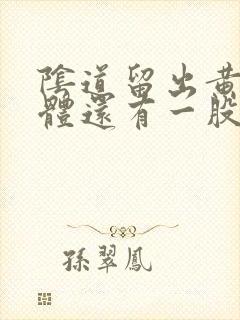 陰道留出黃
體還有一股
孫翠鳳